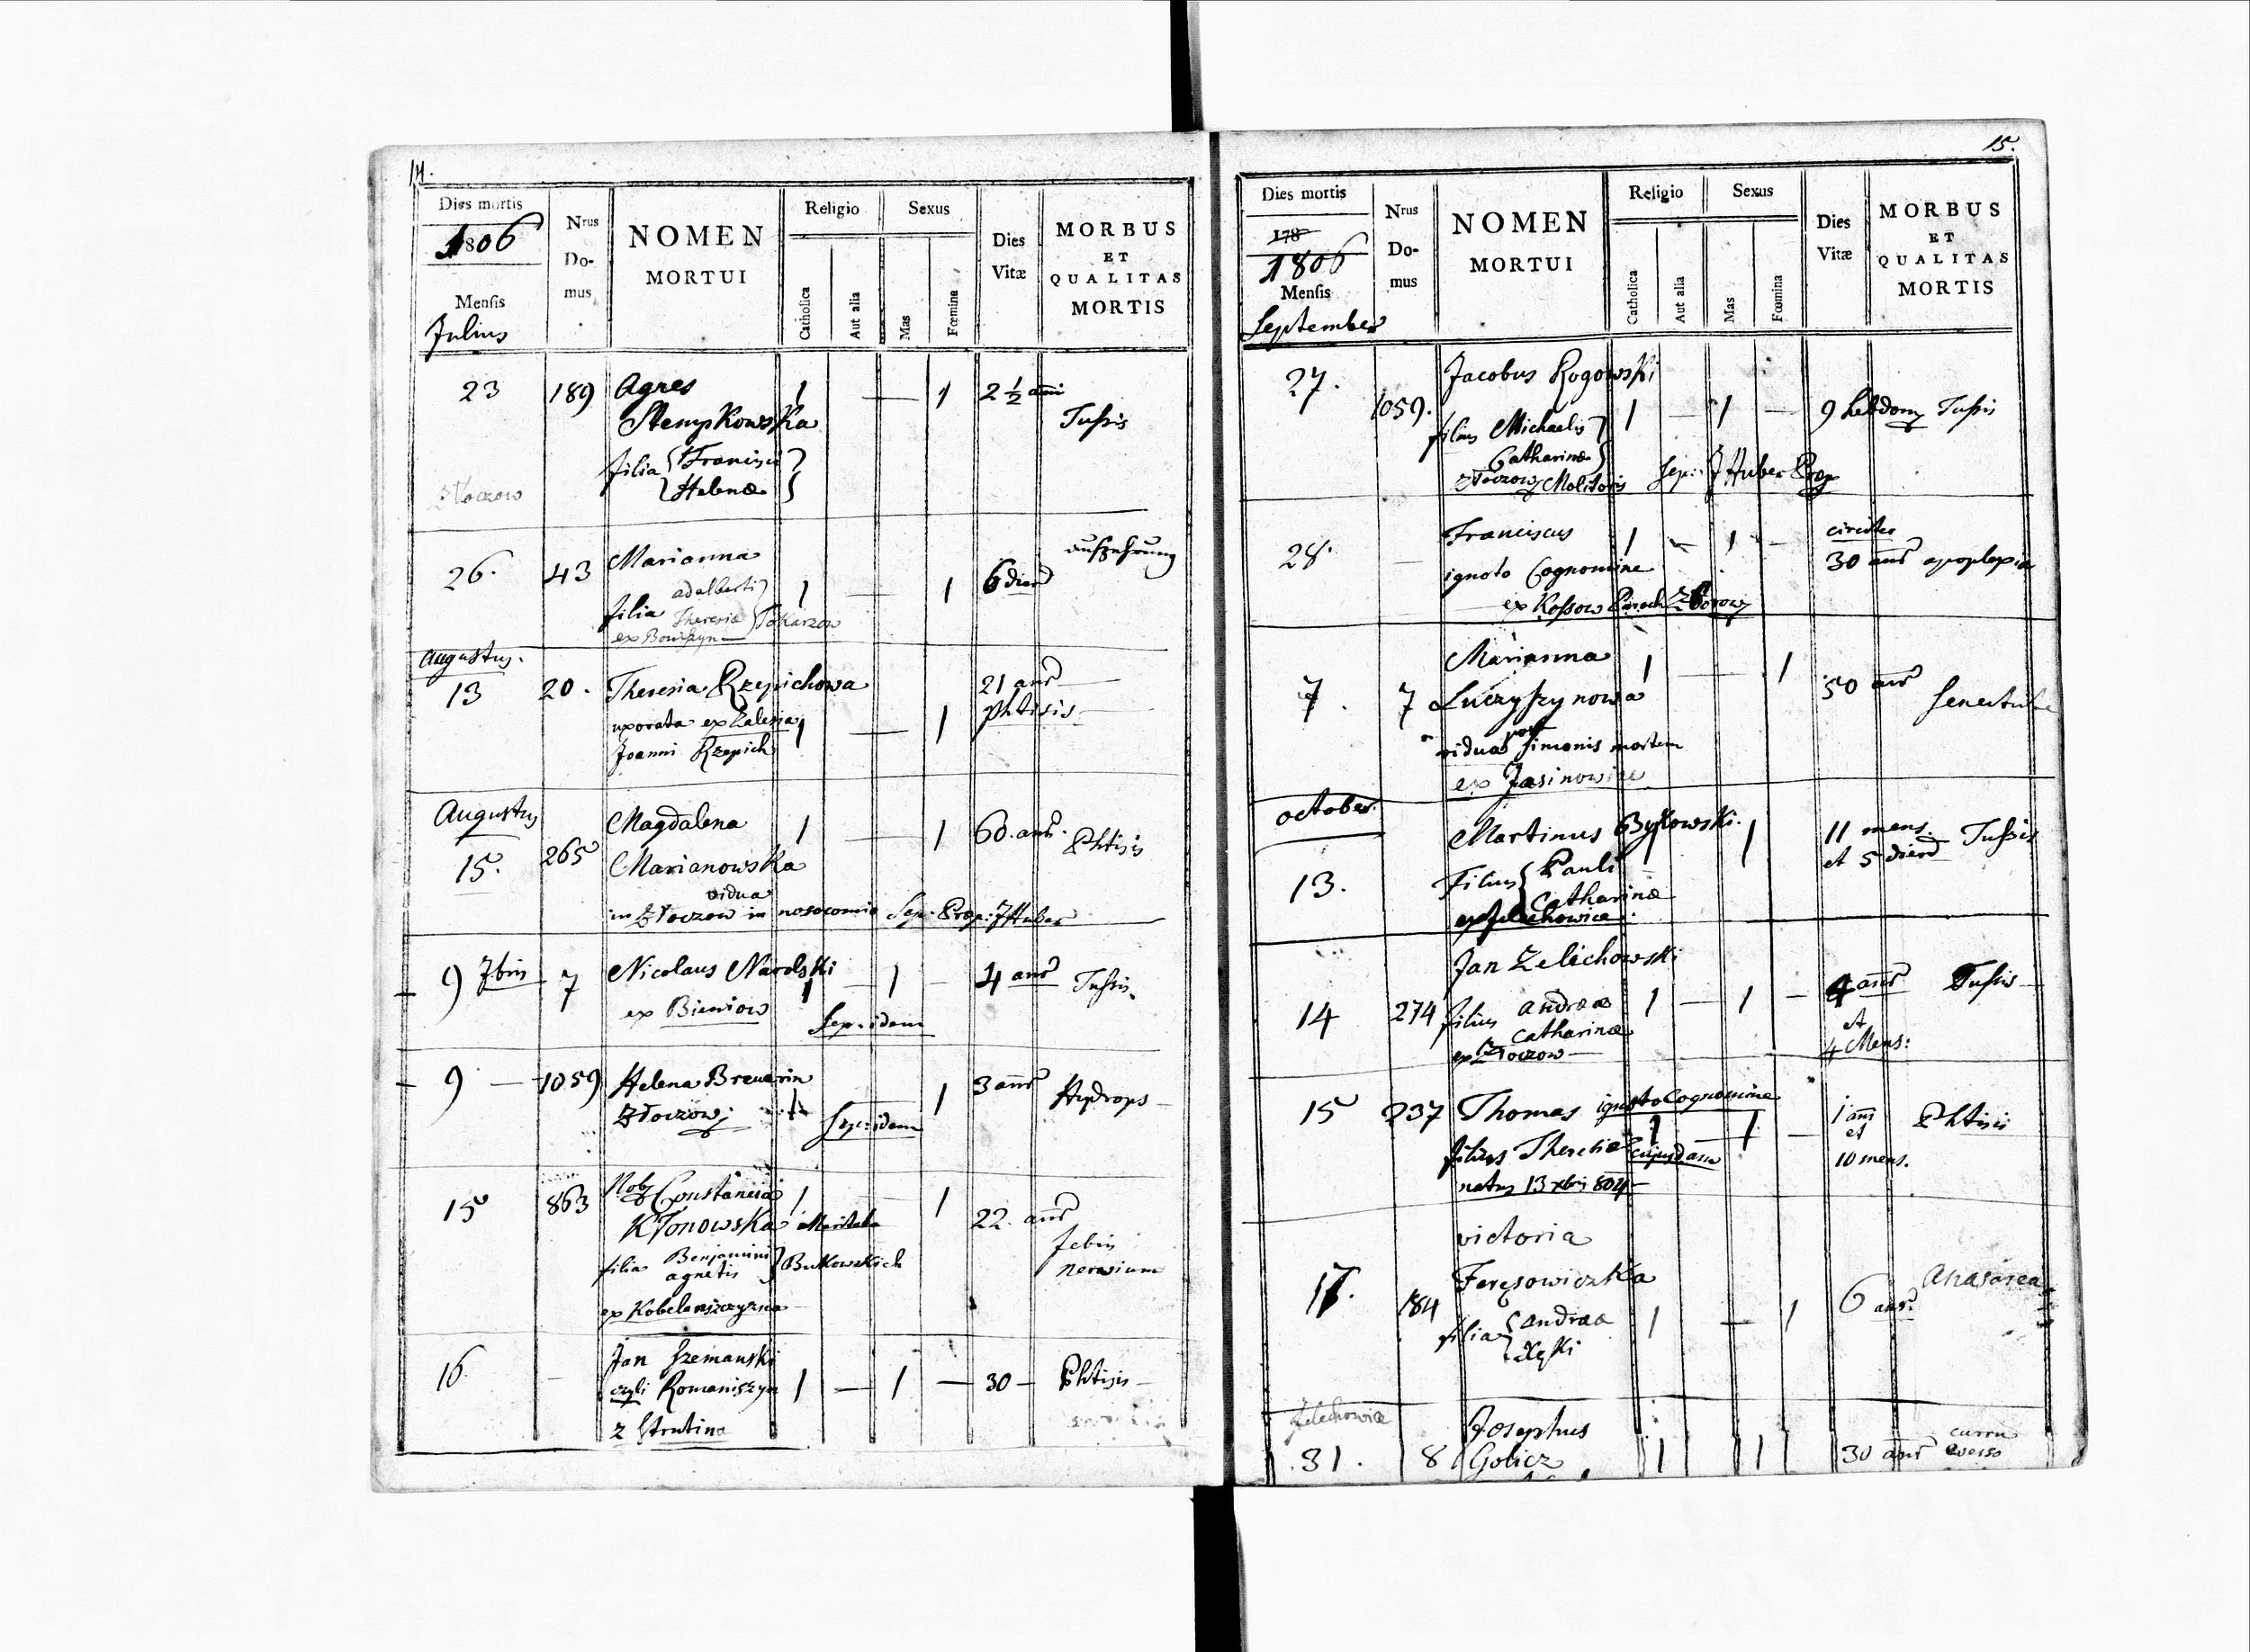 14.
Dies mortis
1806
Mensis
Julius
Nrus
Do-
mus
NOMEN
MORTUI
Religio
Catholica
Aut alia
Sexus
Mas
Fœmina
Dies
Vitæ
MORBUS
ET
QUALITAS
MORTIS
23 189 Agnes 1 — 1 2 ½ anni
Stempkowska Tussis
filia Francisci
Helenæ
Złoczow
26. 43 Marianna Auszehrung
adalberti 1 — 1 6 dier
filia Theresiæ Tokarzow
ex Boniszyn
Augustus.
13 20. Theresia Rzepichowa 21 anr
uxorata ex Zalesia 1 — 1 phtisis
Joanni Rzepich
Augustus
15. 265 Magdalena 1 — 1 60. anr. Phtisis
Marianowska
vidua
in Złoczow in nosocomio Sep: Præp: J Huber
9 7bris 7 Nicolaus Narolski 1 — 1 — 4 anr Tussis.
ex Bieniow
Sep: idem
9 — 1059 Helena Breuerin 1 3 anr Hydrops
Złoczow
Sep: idem
15 863 Nob Constancia 1 1
Kłonowska Maritata 22. anr
filia Benjamini Bukowskich febris
agnetis nervium
ex Kobelniszczyzna
16 — Jan Szemanski
czyli Romaniszyn 1 — 1 — 30 — Phtisis
z Strutina
15.
Dies mortis
178
1806
Mensis
September
Nrus
Do-
mus
NOMEN
MORTUI
Religio
Catholica
Aut alia
Sexus
Mas
Fœmina
Dies
Vitæ
MORBUS
ET
QUALITAS
MORTIS
27. 1059. Jacobus Rogowski
filius Michaelis 1 — 1 — 9 hebdom Tussis
Catharinæ
Złoczow Molitoris Sep: J Huber Præp
28. — Franciscus 1 — 1 — circiter
ignoto Cognomine 30 anr apoplexia
ex Kossow Paroch Zborow
7. 7 Marianna 1 — 1 50 anr
Luczyszynowa Senectute
vidua post Simonis mortem
ex Jasinowice
October.
13. Martinus Bykowski. 1 11 mens. Tussis
Filius Pauli et 5 dier
Catharinæ
ex Jelechowice
14 274 Jan Zelichowski
filius Andreæ 1 — 1 — 4 anr Tussis
Catharinæ et
ex Złoczow 4 Mens:
15 237 Thomas ignoto Cognomine 1 ann Phtisis
filius Theresiæ cujusdam 1 — 1 — et
natus 13 xbris 804 10 mens.
17. 184 Victoria
Feręsowiczka Anasarca
filia Andreæ 1 — 1 6 anr.
Zelechowice
31. 8 Josephus
Golicz 1 1 30 anr curru
everso